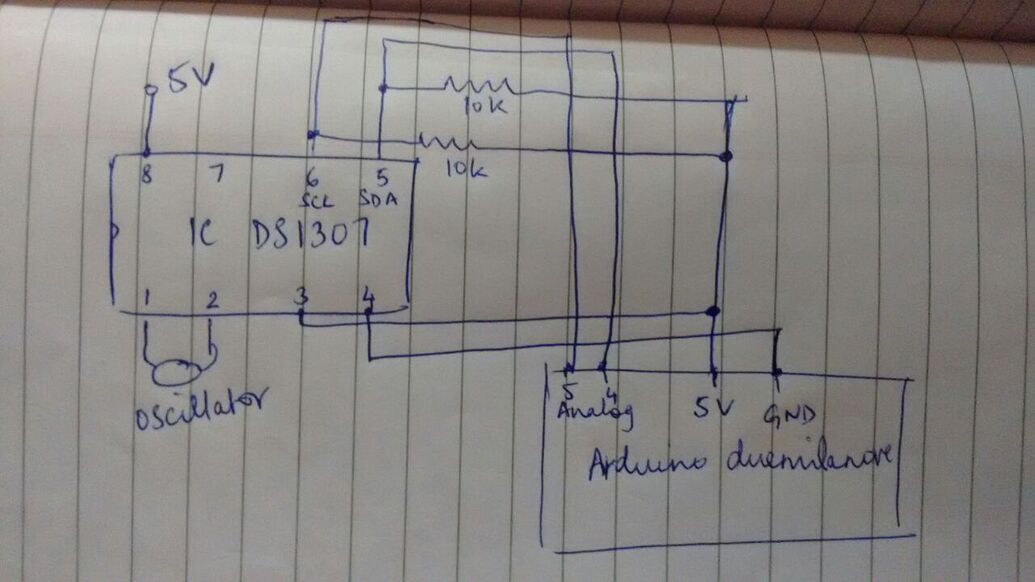 5V
10K
10K
8 7 6 5
SCL SDA
IC DS1307
1 2 3 4
oscillator
5 4 5V GND
Analog
Arduino duemilanove